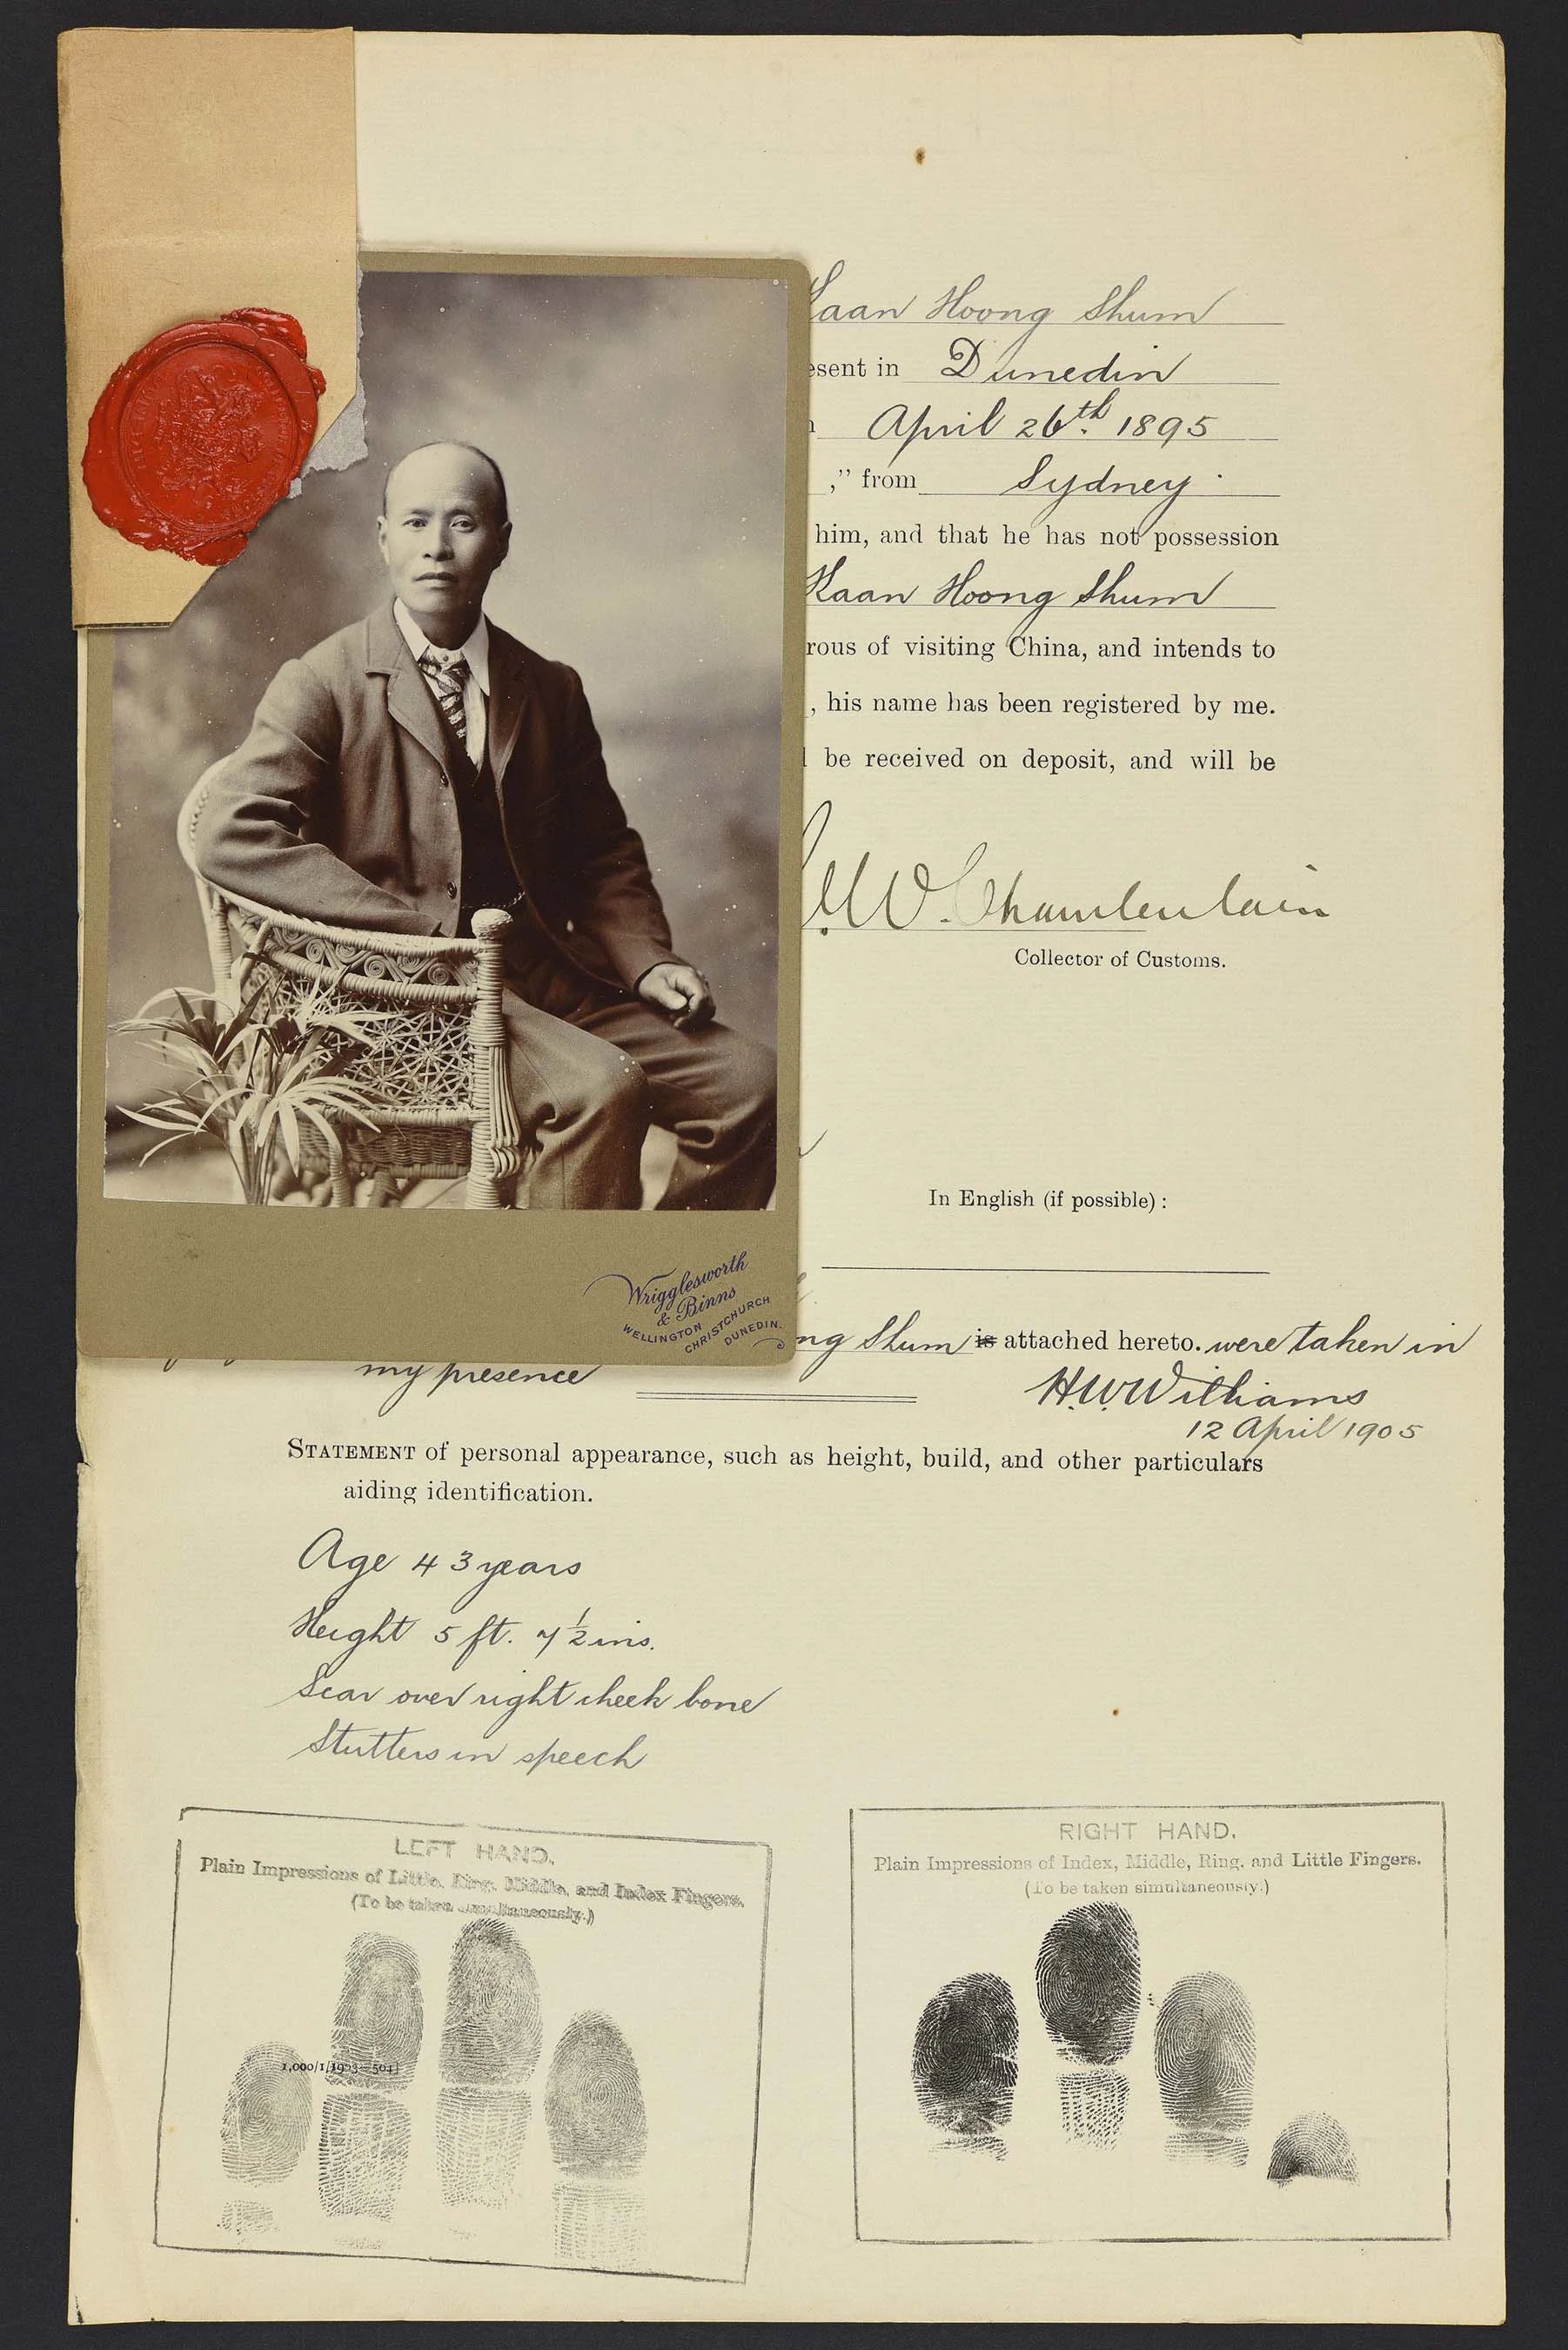 Kaan Hoong Shum
esent in Dunedin
April 26th. 1895
," from Sydney.
him, and that he has not possession
Kaan Hoong Shum
rous of visiting China, and intends to
, his name has been registered by me.
be received on deposit, and will be
W. Chamberlain
Collector of Customs.
In English (if possible) :
Wrigglesworth
& Binns
WELLINGTON
CHRISTCHURCH
DUNEDIN.
ng Shum is attached hereto. were taken in
my presence
H.W. Williams
12 April 1905
STATEMENT of personal appearance, such as height, build, and other particulars
aiding identification.
Age 43 years
Height 5 ft. 7 1/2 ins.
Scar over right cheek bone
Stutters in speech
LEFT HAND.
Plain Impressions of Little, Ring, Middle, and Index Fingers.
(To be taken simultaneously.)
1,000/1/1903—504]
RIGHT HAND.
Plain Impressions of Index, Middle, Ring, and Little Fingers.
(To be taken simultaneously.)